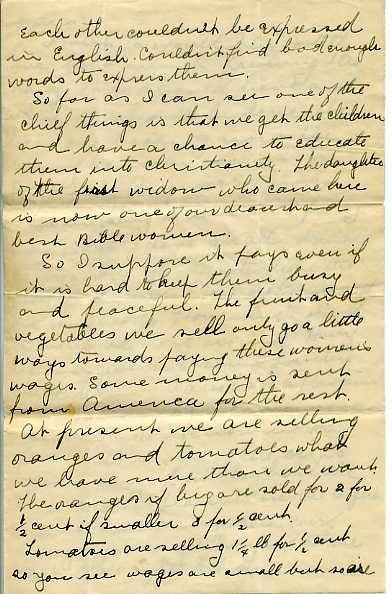 Each other couldn't be expressed
in English. Couldn't find bad enough
words to express them.
So far as I can see one of the
chief things is that we get the children
and have a chance to educate
them into Christianity. The daughter
of the first widow who came here
is now one of our dearest and
best Bible women.
So I suppose it pays even if
it is hard to keep them busy
and peaceful. The fruit and
vegetables we sell only go a little
ways towards paying these women's
wages. Some money is sent
from America for the rest.
At present we are selling
oranges and tomatoes what
we have more than we want.
The oranges if big are sold for 2 for
1/2 cent if smaller 8 for 1/2 cent.
Tomatoes are selling 1 1/4 lb for 1/2 cent
so you see wages are small but so are